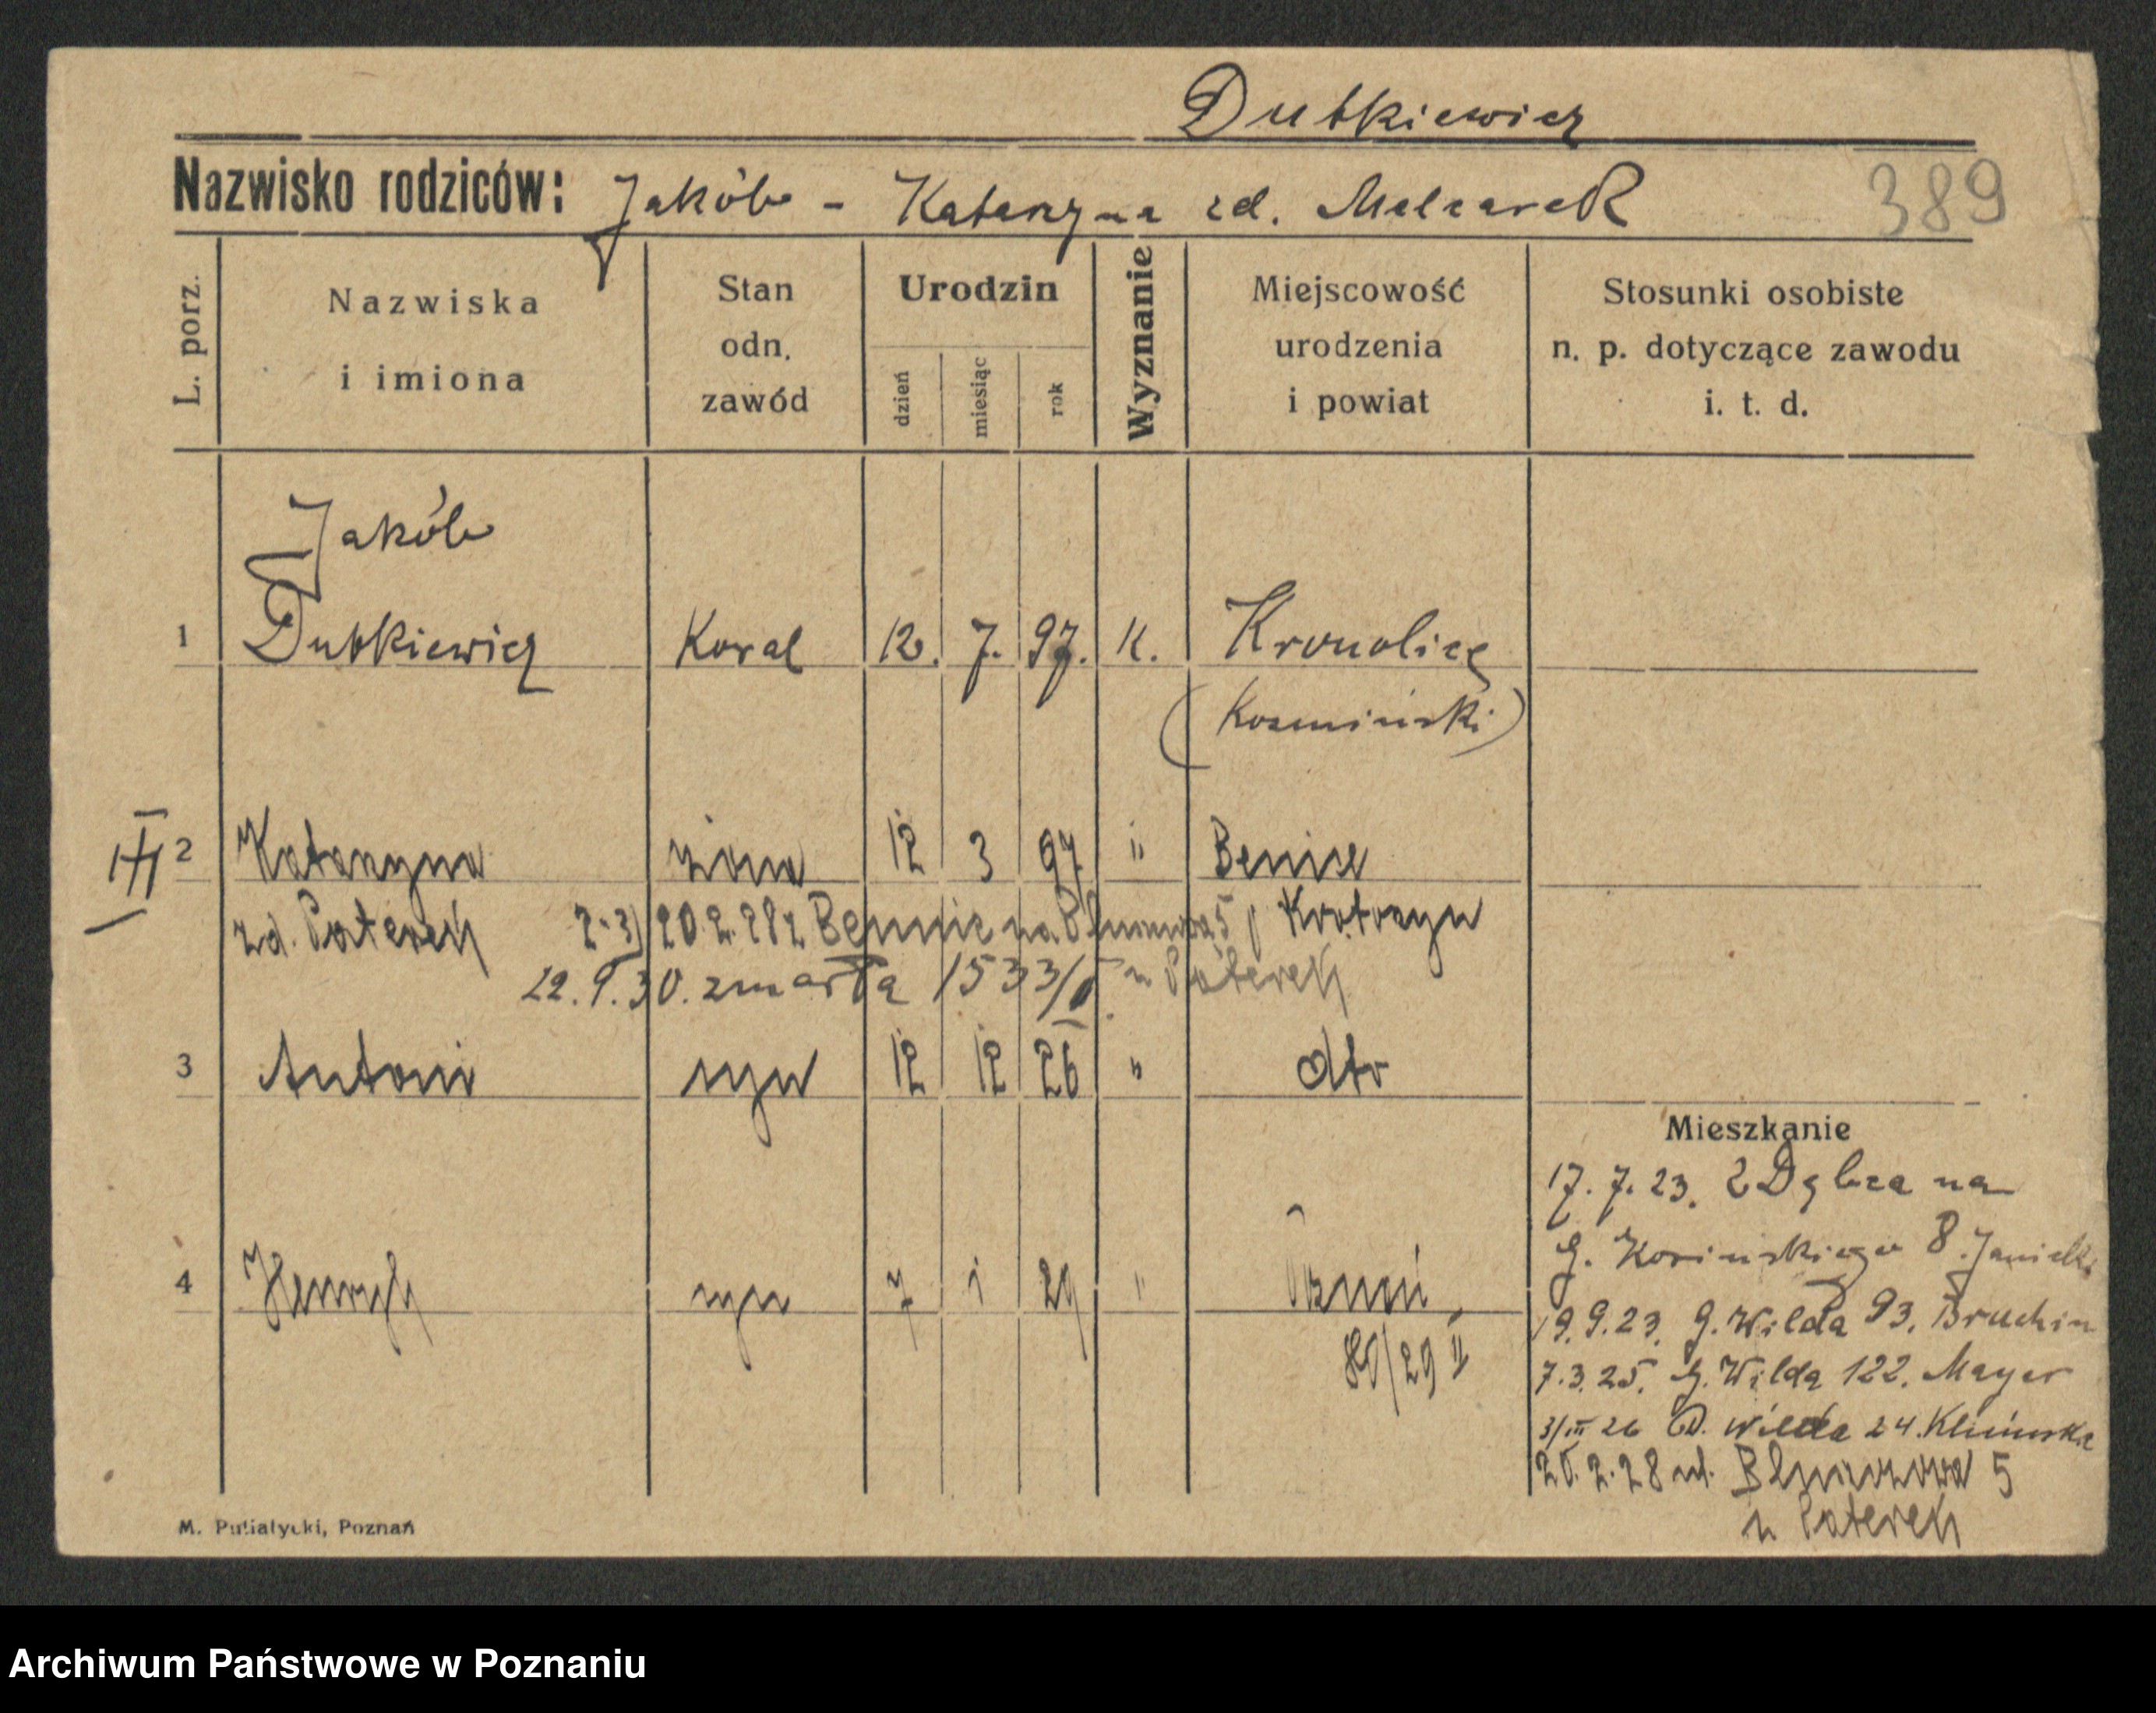 Dutkiewicz
Nazwisko rodziców: Jakób - Katarzyna zd. Melcarek
389
L. porz.
Nazwiska i imiona
Stan odn. zawód
Urodzin
dzień miesiąc rok
Wyznanie
Miejscowość urodzenia i powiat
Stosunki osobiste n. p. dotyczące zawodu i. t. d.
Jakób
1 Dutkiewicz Kowal 12. 7. 97. K.
(Kozmiński)
2 Katarzyna żona 12 3 97 " Benice
zd. Paterek 2-3) 20.2.28 z Bennic na 5 Krotoszyn
22.9.30. zmarła 1533/ u Paterek
3 Antoni syn 12 12 26 " dto
4 Henryk syn 7 1 29 " Poznań
80/29 II
Mieszkanie
17. 7. 23. z Dębca na
G. 8.
19. 9. 23. G. Wilda 93. Bruchin
7. 3. 25. G. Wilda 122. Mayer
3/III 26 D. Wilda 24.
20. 2. 28 ul. 5
u Paterek
M. Putiatycki, Poznań
Archiwum Państwowe w Poznaniu